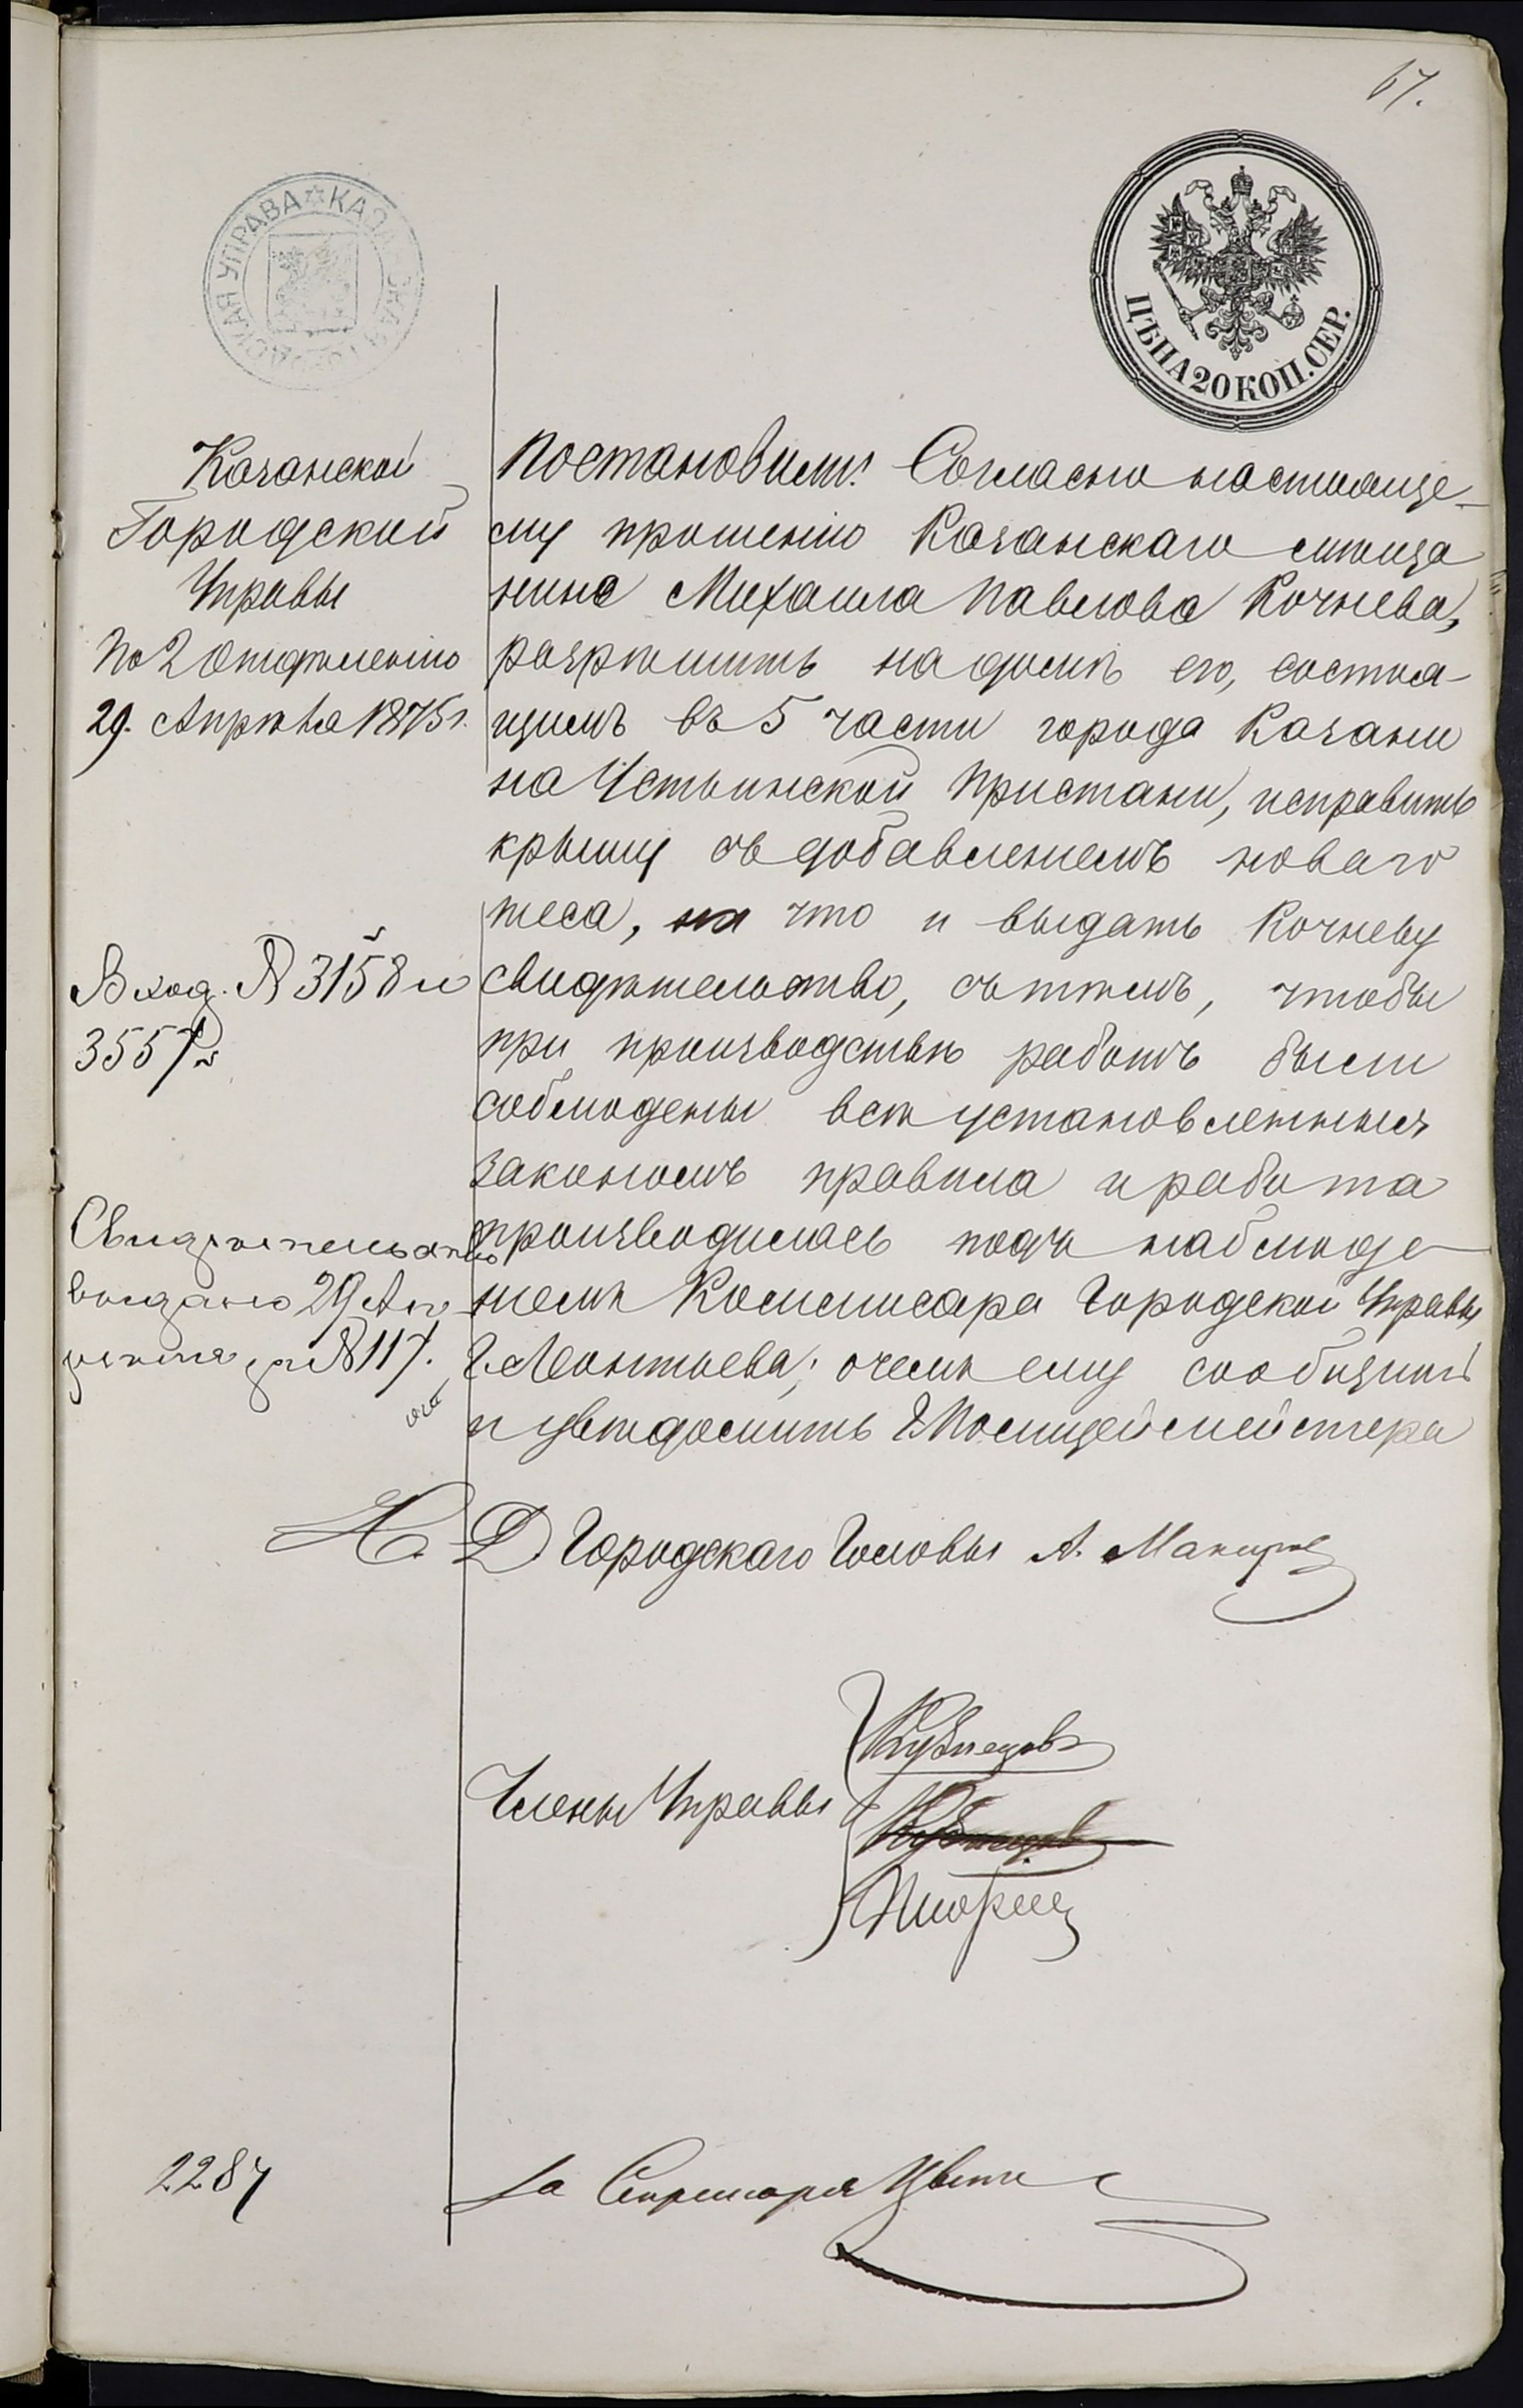 67.
КАЗАНСКАЯ ГОРОДСКАЯ УПРАВА
ЦѢНА 20 КОП. СЕР.
Казанской
Городской
Управы
По 2 Отдѣленію
29. Апрѣля 1875 г.
Постановили: Согласно настояще-
му прошенію Казанскаго мѣща
нина Михаила Павлова Кочнева,
разрѣшить на домѣ его, состоя-
щемъ въ 5 части города Казани
на Устьинской пристани, исправить
крышу съ добавленіемъ новаго
теса, на что и выдать Кочневу
свидѣтельство, съ тѣмъ, чтобы
при производствѣ работъ были
соблюдены всѣ установленныя
закономъ правила и работа
производилась подъ наблюде-
ніемъ Коммисара Городской Управы
Г. Леонтьева; о чемъ ему сообщить
и увѣдомить Г. Полицеймейстера
Вход. № 3158 и
3557
Свидѣтельство
выдано 29 Ап
рѣля за № 117.
И. Д. Городскаго Головы А.
Члены Управы
Кузнецовъ
Кузнецовъ
За Секретаря
2284